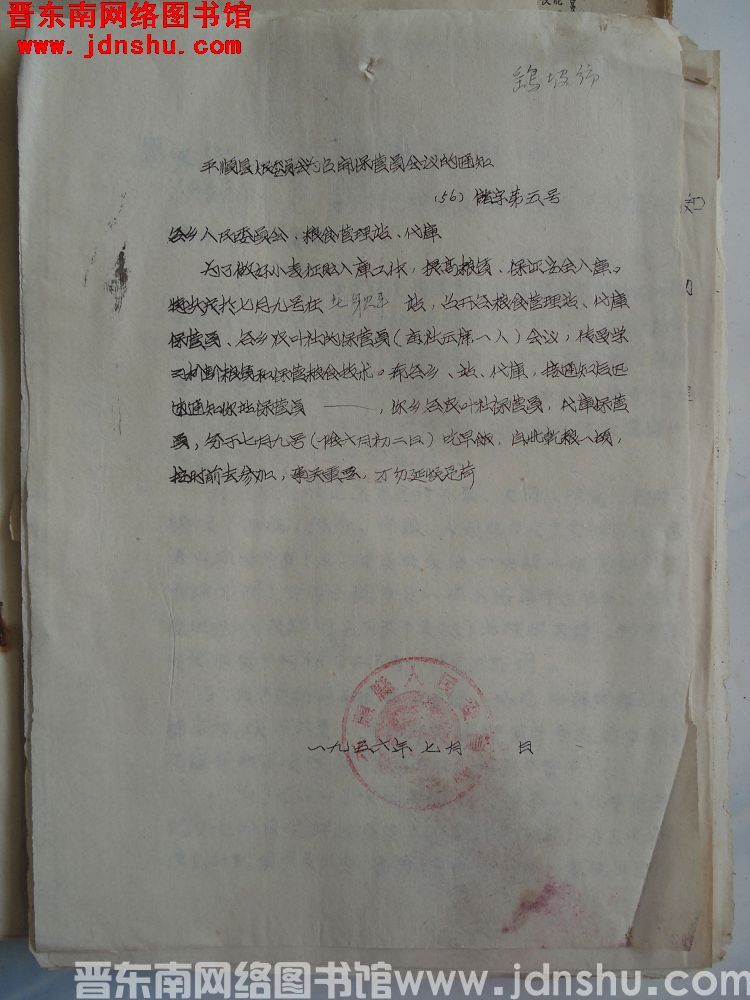 晋东南网络图书馆
www.jdnshu.com
平顺县人民委员会为召开保管员会议的通知
(56) 储字第五号
各乡人民委员会、粮食管理站、代库
为了做好小麦征购入库工作，提高粮质、保证安全入库。
于七月九号在 站，召开各粮食管理站、代库
保管员、各乡农叶社的保管员(每社出席一人)会议，传受学
习判断粮质和保管粮食技术。希各乡、站、代库，接通知后迅
速通知你站保管员 ，你乡各农叶社保管员，代库保管
员，务于七月九号(阴六月初二日)吃早饭，自
按时前去参加，事关重要，万勿延误是荷
一九五六年七月 日
县人民委员
晋东南网络图书馆 www.jdnshu.com